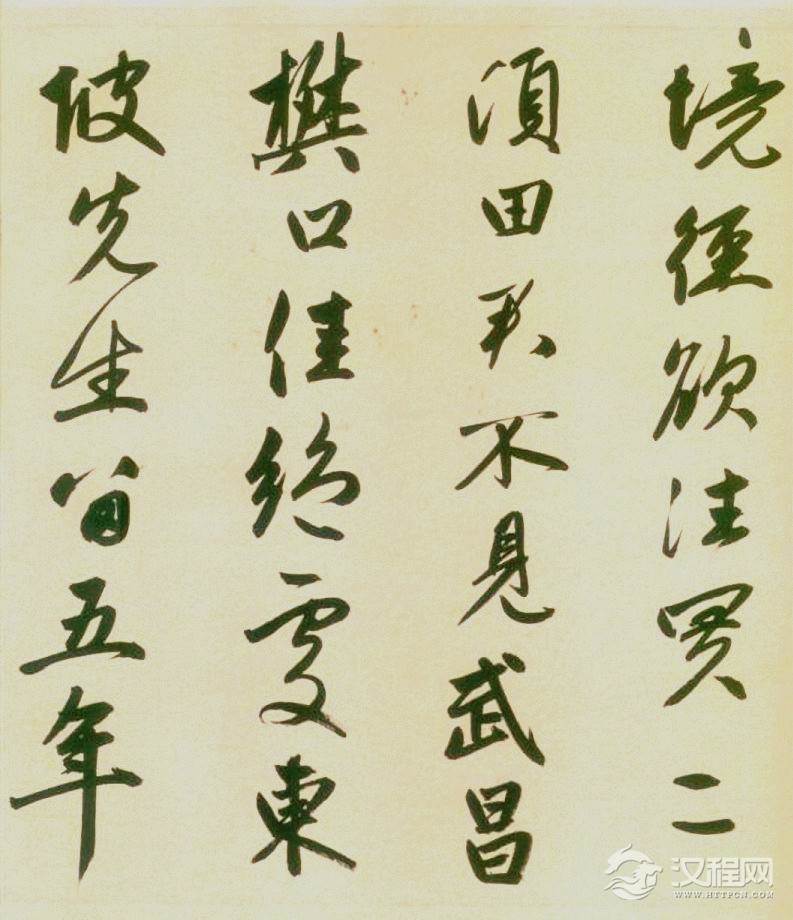 境徑欲往買二
頃田君不見武昌
樊口佳絶處東
坡先生留五年
汉程网
WWW.HTTPCN.COM